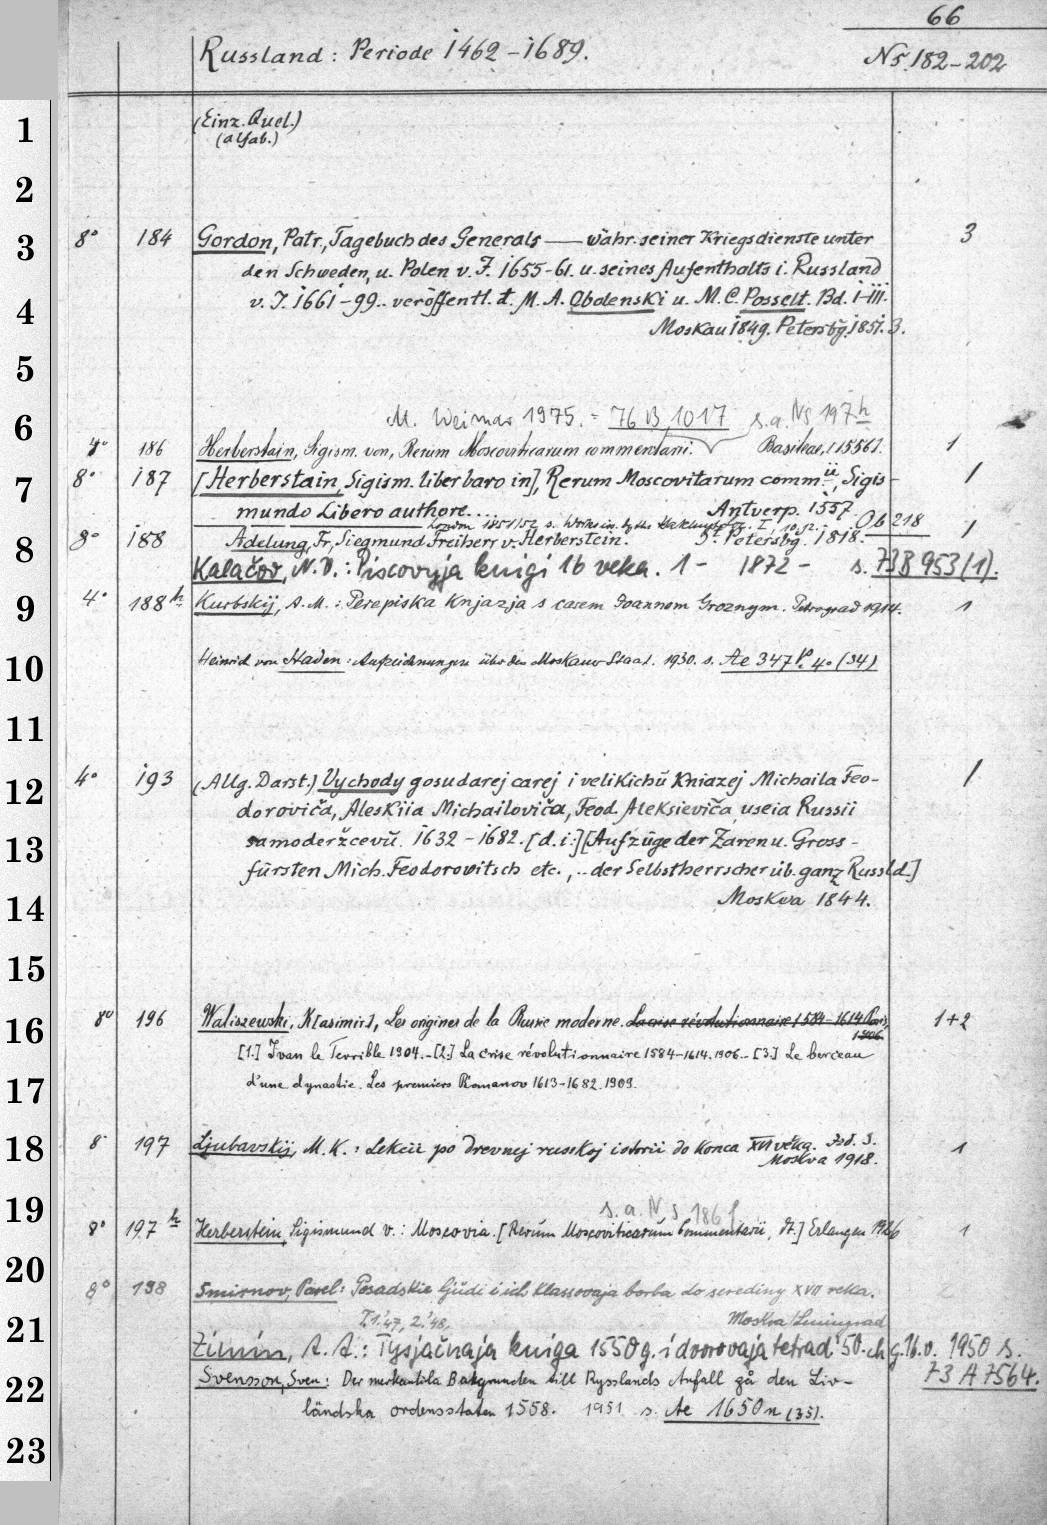 66
Russland: Periode 1462-1689.
NS. 182-202
1
(Einz. Quel.)
(alfab.)
2
3
8° 184 Gordon, Patr., Tagebuch des Generals — währ. seiner Kriegsdienste unter 3
den Schweden, u. Polen v. J. 1655-61. u. seines Aufenthalts i. Russland
4
v. J. 1661-99.. veröffentl. d. M. A. Obolenski u. M. C. Posselt. Bd. I-III.
Moskau 1849. Petersbg. 1851. 3.
5
6
M. Weimar 1975. = 76 B 1017 s.a. NS 197h
4° 186 Herberstain, Sigism. von, Rerum Moscoviticarum commentarii. Basileae, 1556. 1
7
8° 187 [Herberstain, Sigism. liber baro in], Rerum Moscovitarum comm.ii, Sigis- 1
mundo Libero authore.... Antverp. 1557.
London 1851/52 s. Works by the Hakluyt I, 10.12. Ob 218
8
8° 188 Adelung, Fr., Siegmund Freiherr v. Herberstein. St. Petersbg. 1818. 1
Kalačov, N. V.: Piscovyja knigi 16 veka. 1- 1872- s. 73 B 953 (1).
9
4° 188h Kurbskij, A. M.: Perepiska knjazja s carem Ioannom Groznym. Petrograd 1914. 1
10
Heinrich von Staden: Aufzeichnungen über den Moskauer Staat. 1930. s. Ae 347 p. 4° (34)
11
12
4° 193 (Allg. Darst.) Vychody gosudarej carej i velikichŭ Kniazej Michaila Feo- 1
doroviča, Aleskiia Michailoviča, Feod. Aleksieviča, useia Russii
13
samoderžcevŭ. 1632-1682. [d. i.:] [Aufzüge der Zaren u. Gross-
fürsten Mich. Feodorovitsch etc., .. der Selbstherrscher üb. ganz Russld.]
14
Moskva 1844.
15
16
8° 196 Waliszewski, K[asimir], Les origines de la Russie moderne. La crise révolutionnaire 1584-1614 Paris, 1+2
1906.
[1.] Ivan le Terrible 1904. - [2.] La crise révolutionnaire 1584-1614. 1906. - [3.] Le berceau
17
d'une dynastie. Les premiers Romanov 1613-1682. 1909.
18
8° 197 Ljubavskij, M. K.: Lekcii po drevnej russkoj istorii do konca XVI věka. Izd. 3. 1
Moskva 1918.
19
s. a. NS 186 f
8° 197h Herberstein, Sigismund v.: Moscovia. [Rerum Moscoviticarum Commentarii, dt.] Erlangen 1926 1
20
8° 198 Smirnov, Pavel: Posadskie ljudi i ich klassovaja borba do serediny XVII veka. 2
21
T. 1.'47, 2.'48. Moskva/Leningrad
Zimin, A. A.: Tysjačnaja kniga 1550 g. i dvorovaja tetrad' 50-ch g. 16. v. 1950 s.
73 A 7564.
22
Svensson, Sven: Der merkantila Bakgrunden till Rysslands Anfall på den Liv-
ländska ordensstaten 1558. 1951 s. Ae 1650 n (35).
23